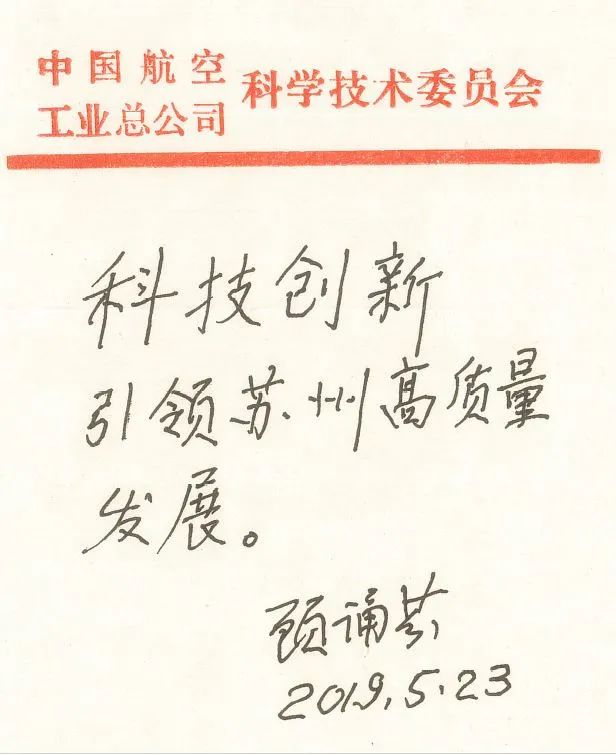 中国航空
工业总公司 科学技术委员会
科技创新
引领苏州高质量
发展。
顾诵芬
2019.5.23